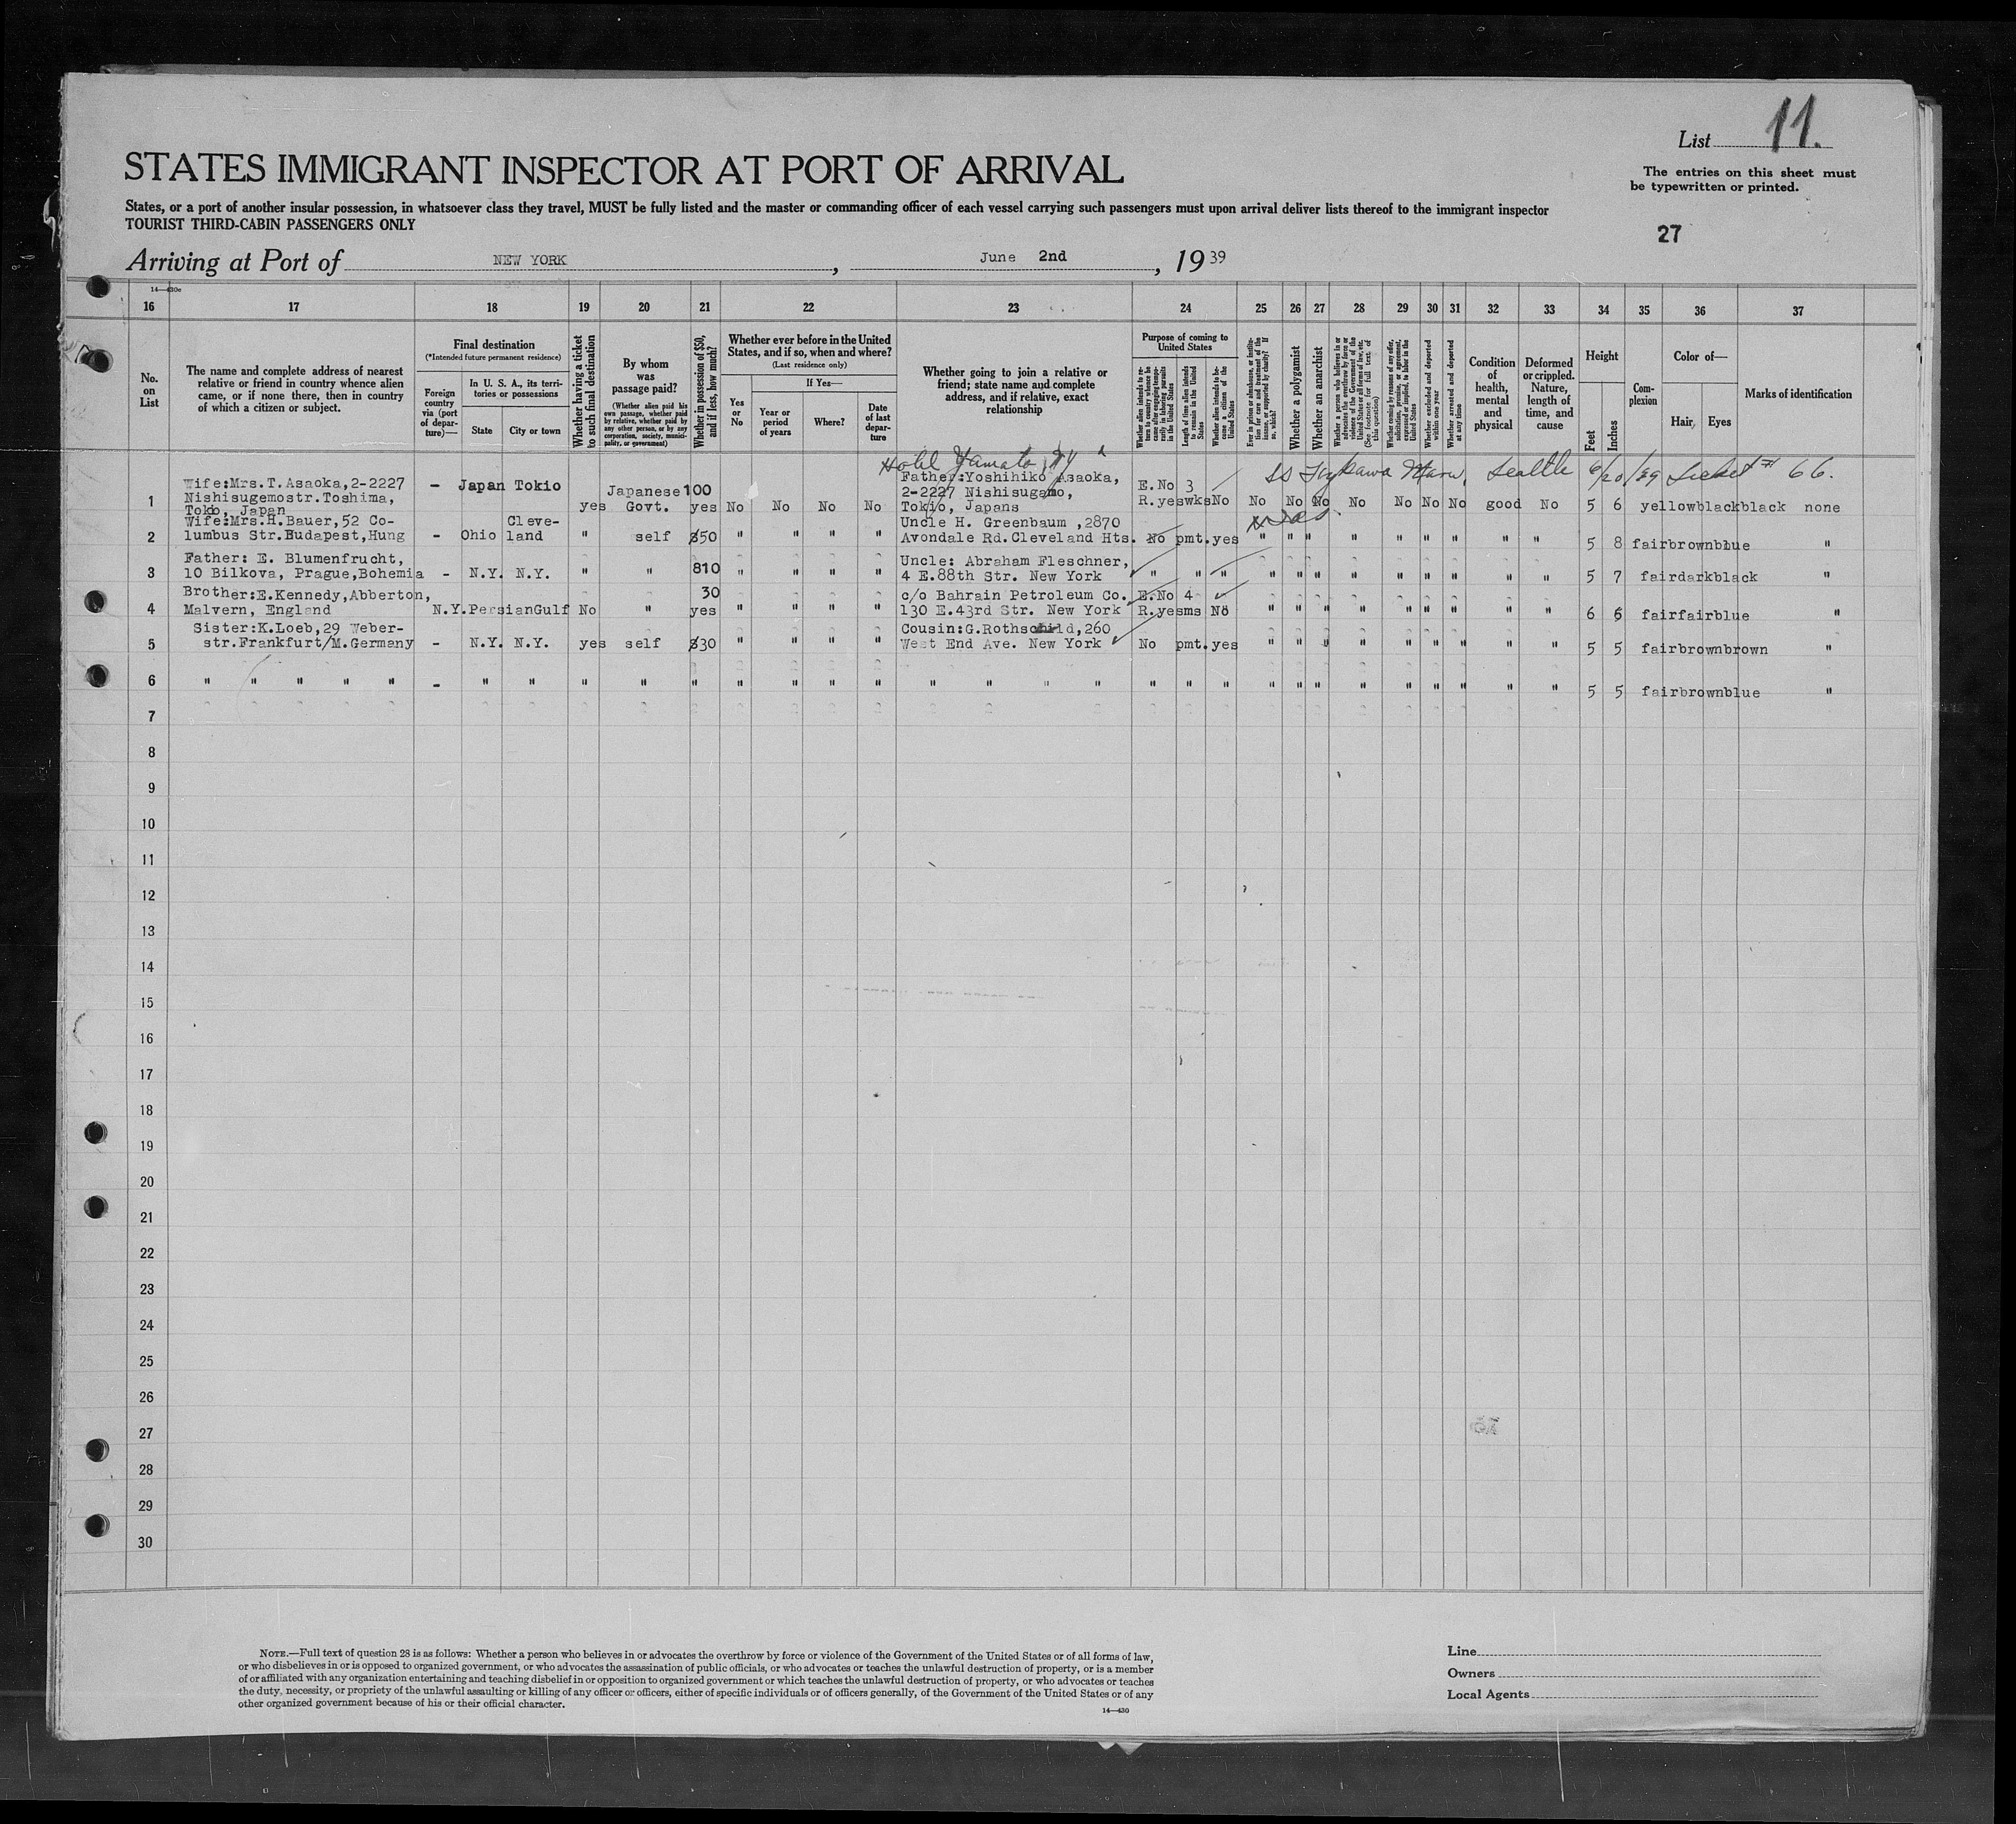 List 11.
The entries on this sheet must
be typewritten or printed.
STATES IMMIGRANT INSPECTOR AT PORT OF ARRIVAL
States, or a port of another insular possession, in whatsoever class they travel, MUST be fully listed and the master or commanding officer of each vessel carrying such passengers must upon arrival deliver lists thereof to the immigrant inspector
TOURIST THIRD-CABIN PASSENGERS ONLY
27
Arriving at Port of NEW YORK, June 2nd, 1939
14—430e
16 17 18 19 20 21 22 23 24 25 26 27 28 29 30 31 32 33 34 35 36 37
No. on List
The name and complete address of nearest
relative or friend in country whence alien
came, or if none there, then in country
of which a citizen or subject.
Final destination
(*Intended future permanent residence)
Foreign country via (port of departure)—
In U. S. A., its territories or possessions
State
City or town
Whether having a ticket to such final destination
By whom was passage paid?
(Whether alien paid his own passage, whether paid by relative, whether paid by any other person, or by any corporation, society, municipality, or government)
Whether in possession of $50, and if less, how much?
Whether ever before in the United
States, and if so, when and where?
(Last residence only)
Yes or No
If Yes—
Year or period of years
Where?
Date of last departure
Whether going to join a relative or
friend; state name and complete
address, and if relative, exact
relationship
Purpose of coming to
United States
Whether alien intends to return to country whence he came after engaging temporarily in laboring pursuits in the United States
Length of time alien intends to remain in the United States
Whether alien intends to become a citizen of the United States
Ever in prison or almshouse, or institution for care and treatment of the insane, or supported by charity? If so, which?
Whether a polygamist
Whether an anarchist
Whether a person who believes in or advocates the overthrow by force or violence of the Government of the United States or all forms of law, etc. (See footnote for full text of this question)
Whether coming by reasons of any offer, solicitation, promise, or agreement, expressed or implied, to labor in the United States
Whether excluded and deported within one year
Whether arrested and deported at any time
Condition of health, mental and physical
Deformed or crippled. Nature, length of time, and cause
Height
Feet
Inches
Complexion
Color of—
Hair, Eyes
Marks of identification
Hotel Yamato, NY
Seattle 6/20/39 66.
1 Wife:Mrs.T.Asaoka,2-2227
Nishisugemostr.Toshima,
Tokio, Japan
- Japan Tokio yes Japanese Govt. 100 yes No No No No
Father:Yoshihiko Asaoka,
2-2227 Nishisugamo,
Tokio, Japans
E.No 3
R.yes wks No No No No No No No No good No 5 6 yellow black black none
2 Wife:Mrs.H.Bauer,52 Co-
lumbus Str.Budapest,Hung
- Ohio Cleve-
land " self $50 " " " "
Uncle H. Greenbaum ,2870
Avondale Rd.Cleveland Hts. No pmt. yes " " " " " " " " " 5 8 fair brown blue "
3 Father: E. Blumenfrucht,
10 Bilkova, Prague,Bohemia
- N.Y. N.Y. " " 810 " " " "
Uncle: Abraham Fleschner,
4 E.88th Str. New York " " " " " " " " " " " " 5 7 fair dark black "
4 Brother:E.Kennedy,Abberton,
Malvern, England
N.Y. Persian Gulf No " 30 yes " " " "
c/o Bahrain Petroleum Co.
130 E.43rd Str. New York
E.No 4
R.yes ms No " " " " " " " " " 6 6 fair fair blue "
5 Sister:K.Loeb,29 Weber-
str.Frankfurt/M.Germany
- N.Y. N.Y. yes self $30 " " " "
Cousin:G.Rothschild,260
West End Ave. New York No pmt. yes " " " " " " " " " 5 5 fair brown brown "
6 " " " " " - " " " " " " " " " " " " " " " " " " " " " " " " " 5 5 fair brown blue "
7
8
9
10
11
12
13
14
15
16
17
18
19
20
21
22
23
24
25
26
27
28
29
30
NOTE.—Full text of question 28 is as follows: Whether a person who believes in or advocates the overthrow by force or violence of the Government of the United States or of all forms of law,
or who disbelieves in or is opposed to organized government, or who advocates the assassination of public officials, or who advocates or teaches the unlawful destruction of property, or is a member
of or affiliated with any organization entertaining and teaching disbelief in or opposition to organized government or which teaches the unlawful destruction of property, or who advocates or teaches
the duty, necessity, or propriety of the unlawful assaulting or killing of any officer or officers, either of specific individuals or of officers generally, of the Government of the United States or of any
other organized government because of his or their official character.
14—430
Line
Owners
Local Agents